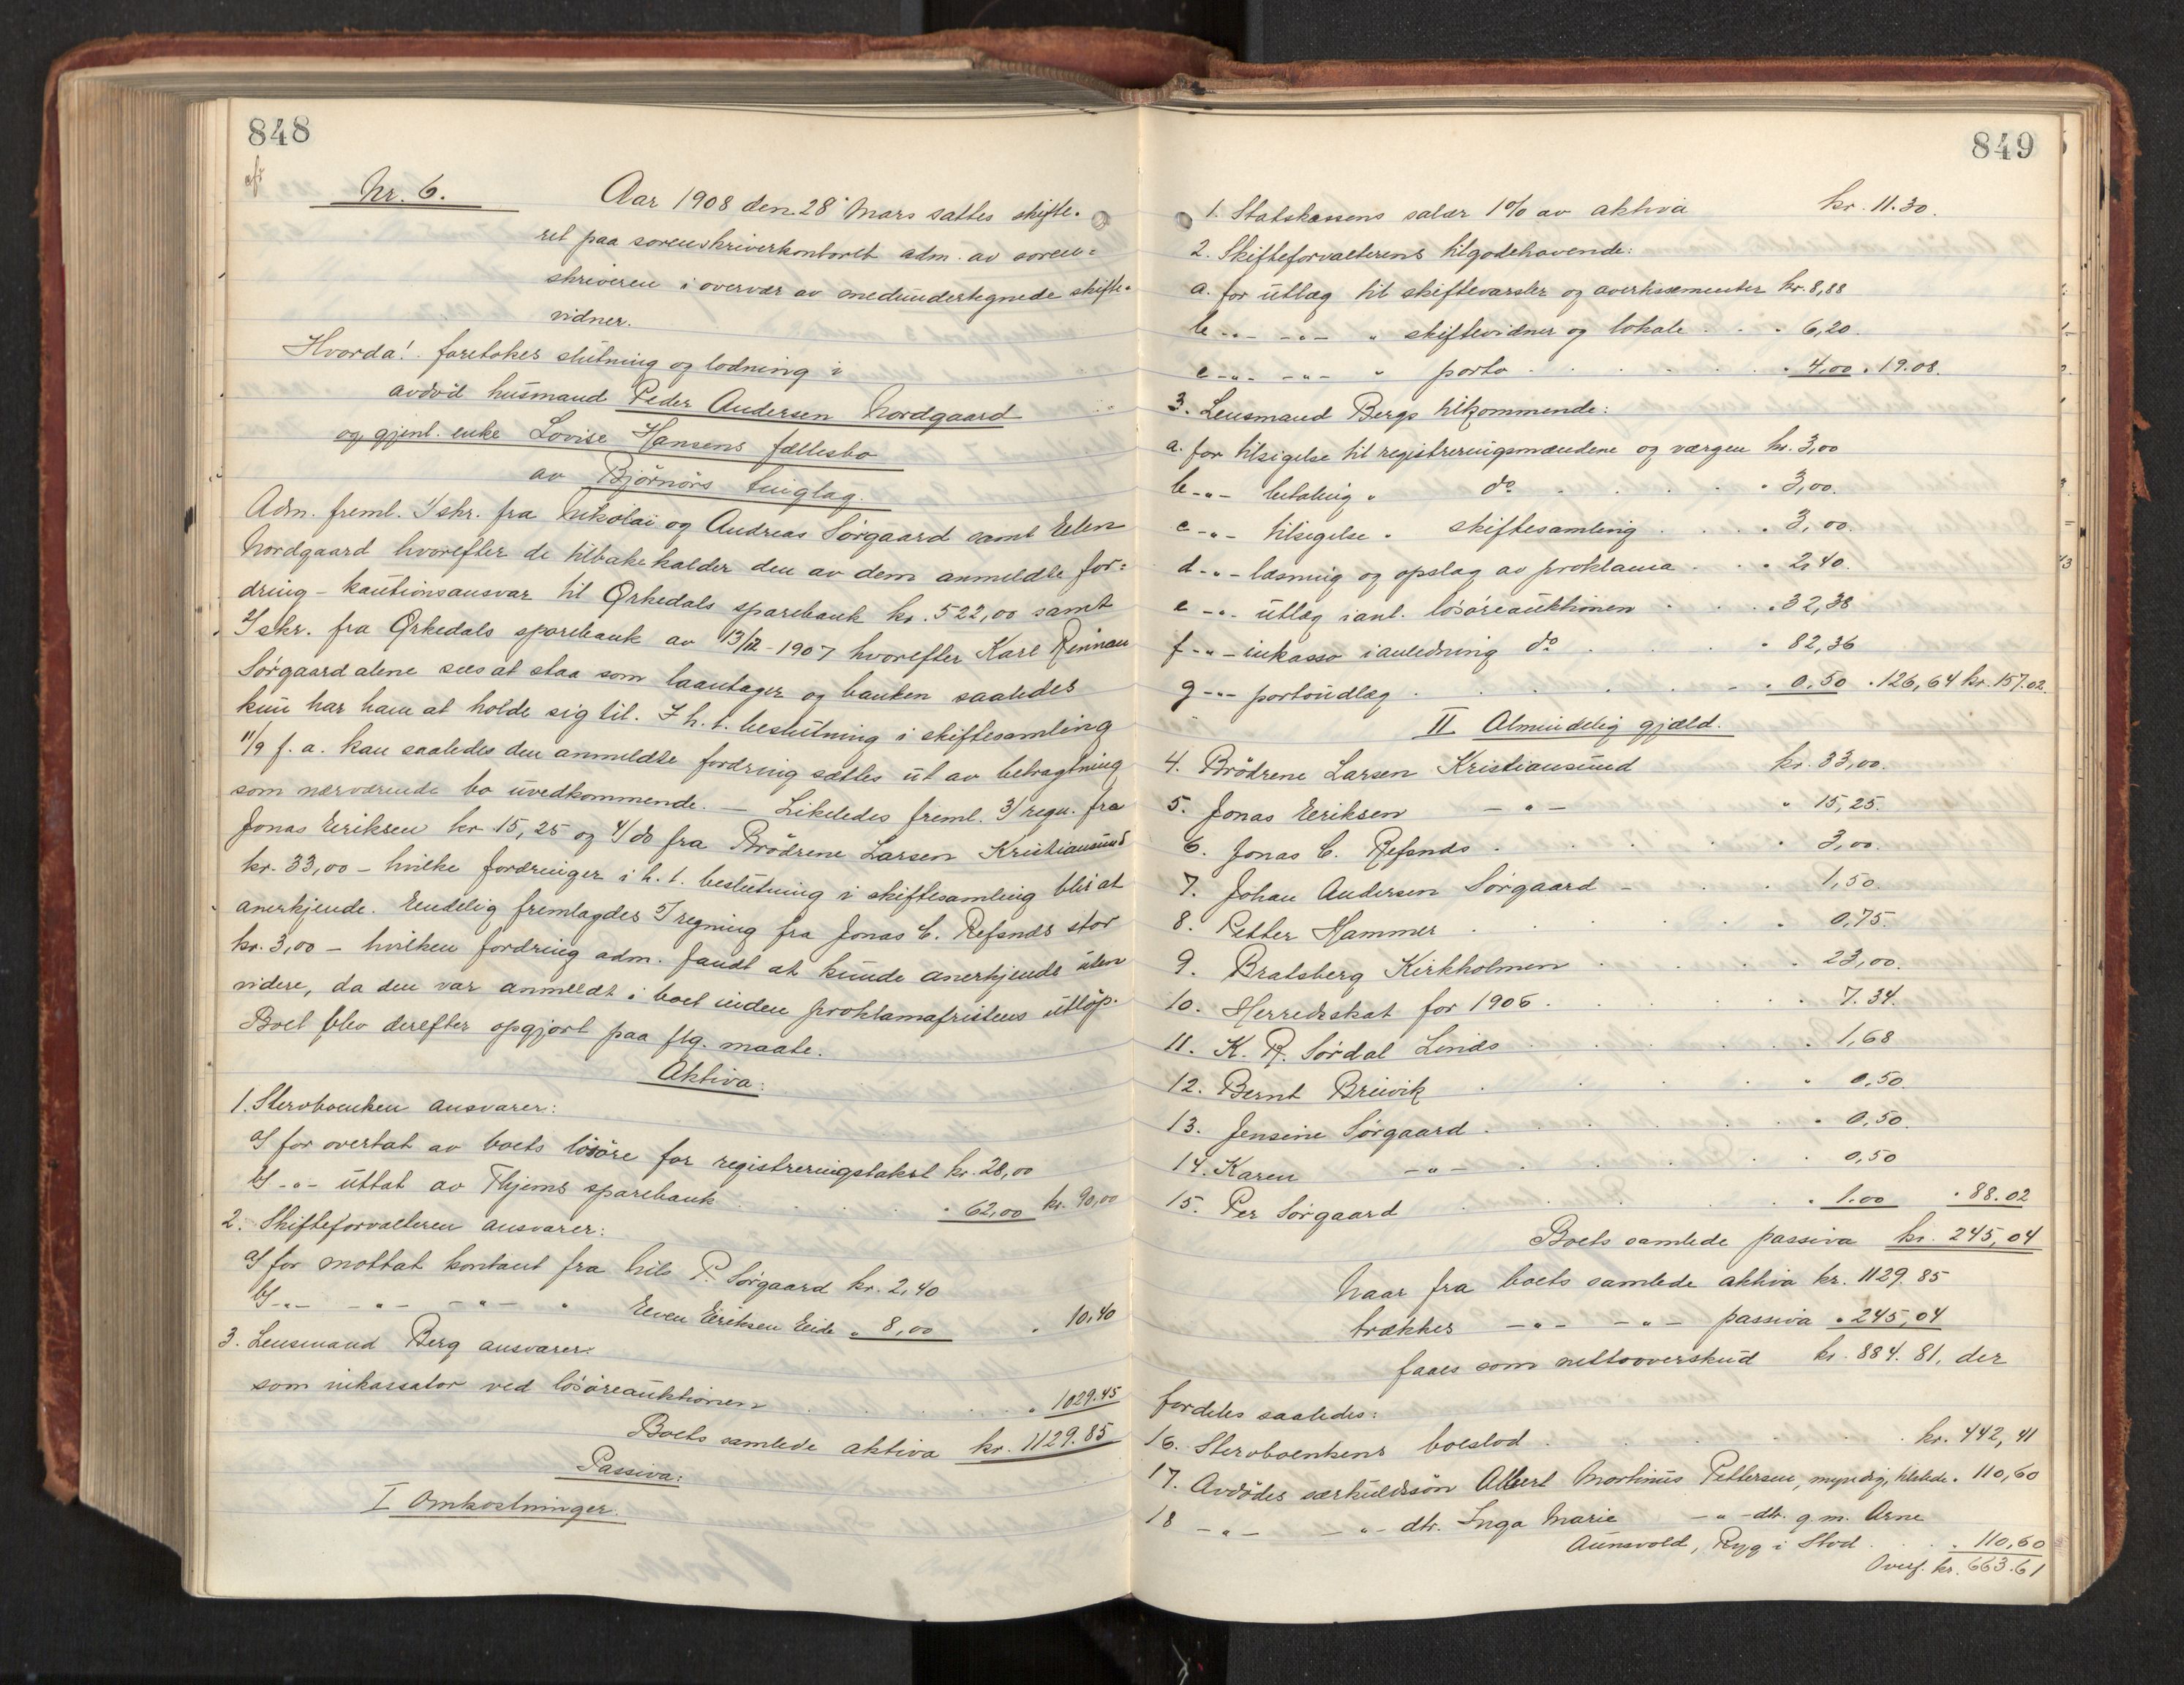 848
Nr. 6.
Aar 1908 den 28' Mars sattes skifte-
ret paa sorenskriverkontoret adm. av soren=
skriveren i overvær av medundertegnede skifte-
vidner.
Hvorda! foretokes slutning og lodning i
avdød husmand Peder Andersen Nordgaard
og gjenl. enke Lovise Hansens fællesbo
av Bjørnørs tinglag.
Adm. freml. 1/ skr. fra Nikolai og Andreas Sørgaard samt Elen
Nordgaard hvorefter de tilbakekalder den av dem anmeldte for=
dring - kautionsansvar til Ørkedals sparebank kr. 522,00 samt
2/ skr. fra Ørkedals sparebank av 13/12-1907 hvorefter Karl Rinnan
Sørgaard alene sees at staa som laantager og banken saaledes
kun har ham at holde sig til. I h. t. beslutning i skiftesamling
11/9 f. a. kan saaledes den anmeldte fordring sættes ut av betragtning
som nærværende bo uvedkommende. — Likeledes freml. 3/ regn. fra
Jonas Eeriksen kr 15,25 og 4/ do fra Brødrene Larsen Kristiansund
kr. 33,00 - hvilke fordringer i h. t. beslutning i skiftesamling blir at
anerkjende. Eendelig fremlagdes 5 regning fra Jonas C. Refsnds stor
kr. 3,00 - hvilken fordring adm. fandt at kunde anerkjende uten
videre, da den var anmeldt i boet inden proklamafristens utløp.
Boet blev derefter opgjort paa flg. maate.
Aktiva:
1. Stervboenken ansvarer:
a/ for overtat av boets løsøre for registreringstakst kr. 28,00
b/ -"- uttat av Thjems sparebank . . . . . " 62,00 kr. 90,00
2. Skifteforvalteren ansvarer:
a/ for mottat kontant fra Nils P. Sørgaard kr. 2,40
b/ -"- -"- -"- " Eeven Eeriksen Eeide " 8,00 " 10,40
3. Lensmand Berg ansvarer:
som inkassator ved løsøreauktionen . . . . . " 1029.45
Boets samlede aktiva kr. 1129.85
Passiva:
I Omkostninger.
849
1. Statskassens salær 1% av aktiva kr. 11.30.
2. Skifteforvalterens tilgodehavende:
a. for utlæg til skiftevarsler og avertissementer kr. 8,88
b -"- -"- " skiftevidner og lokale . . " 6,20.
c -"- -"- " porto . . . . . . " 4,00 " 19.08.
3. Lensmand Bergs tilkommende:
a. for tilsigelse til registreringsmændene og værgen kr. 3,00
b -"- betaling " do . . . . " 3,00.
c -"- tilsigelse " skiftesamling . . . . " 3,00.
d -"- læsning og opslag av proklama . . " 2,40.
e -"- utlæg i anl. løsøreauktionen . . . . " 32,38
f -"- inkasso i anledning do . . . . " 82,36
g -"- portoudlæg . . . . . . " 0,50 " 126,64 kr. 157.02.
II Almindelig gjæld.
4. Brødrene Larsen Kristiansund kr. 33,00.
5. Jonas Eeriksen -"- " 15,25.
6. Jonas C. Refsnds . . . . . " 3,00.
7. Johan Andersen Sørgaard - . . . 1,50.
8. Petter Hammer . . . . . " 0,75.
9. Bratsberg Kirkholmen . . . . . 23,00.
10. Herredsskat for 1906 . . . . . " 7.34.
11. K. R. Sørdal Linds . . . . . " 1,68
12. Bernt Breivik . . . . . " 0,50.
13. Jensine Sørgaard . . . . . " 0,50.
14. Karen -"- . . . . . 0,50
15. Per Sørgaard . . . . . " 1.00 " 88.02
Boets samlede passiva kr. 245,04
Naar fra boets samlede aktiva kr. 1129.85
trækkes -"- -"- passiva " 245,04
faaes som nettooverskud kr. 884.81, der
fordeles saaledes:
16. Stervboenkens boeslod . . . . . kr. 442,41
17. Avdødes særkuldssøn Albert Martinus Pettersen, myndig, tilstede " 110,60
18 -"- -"- dtr. Inga Marie -"- dtr. g. m. Arne
Aunsvold, Ryg i Stod . . " 110,60
Overf. kr. 663.61